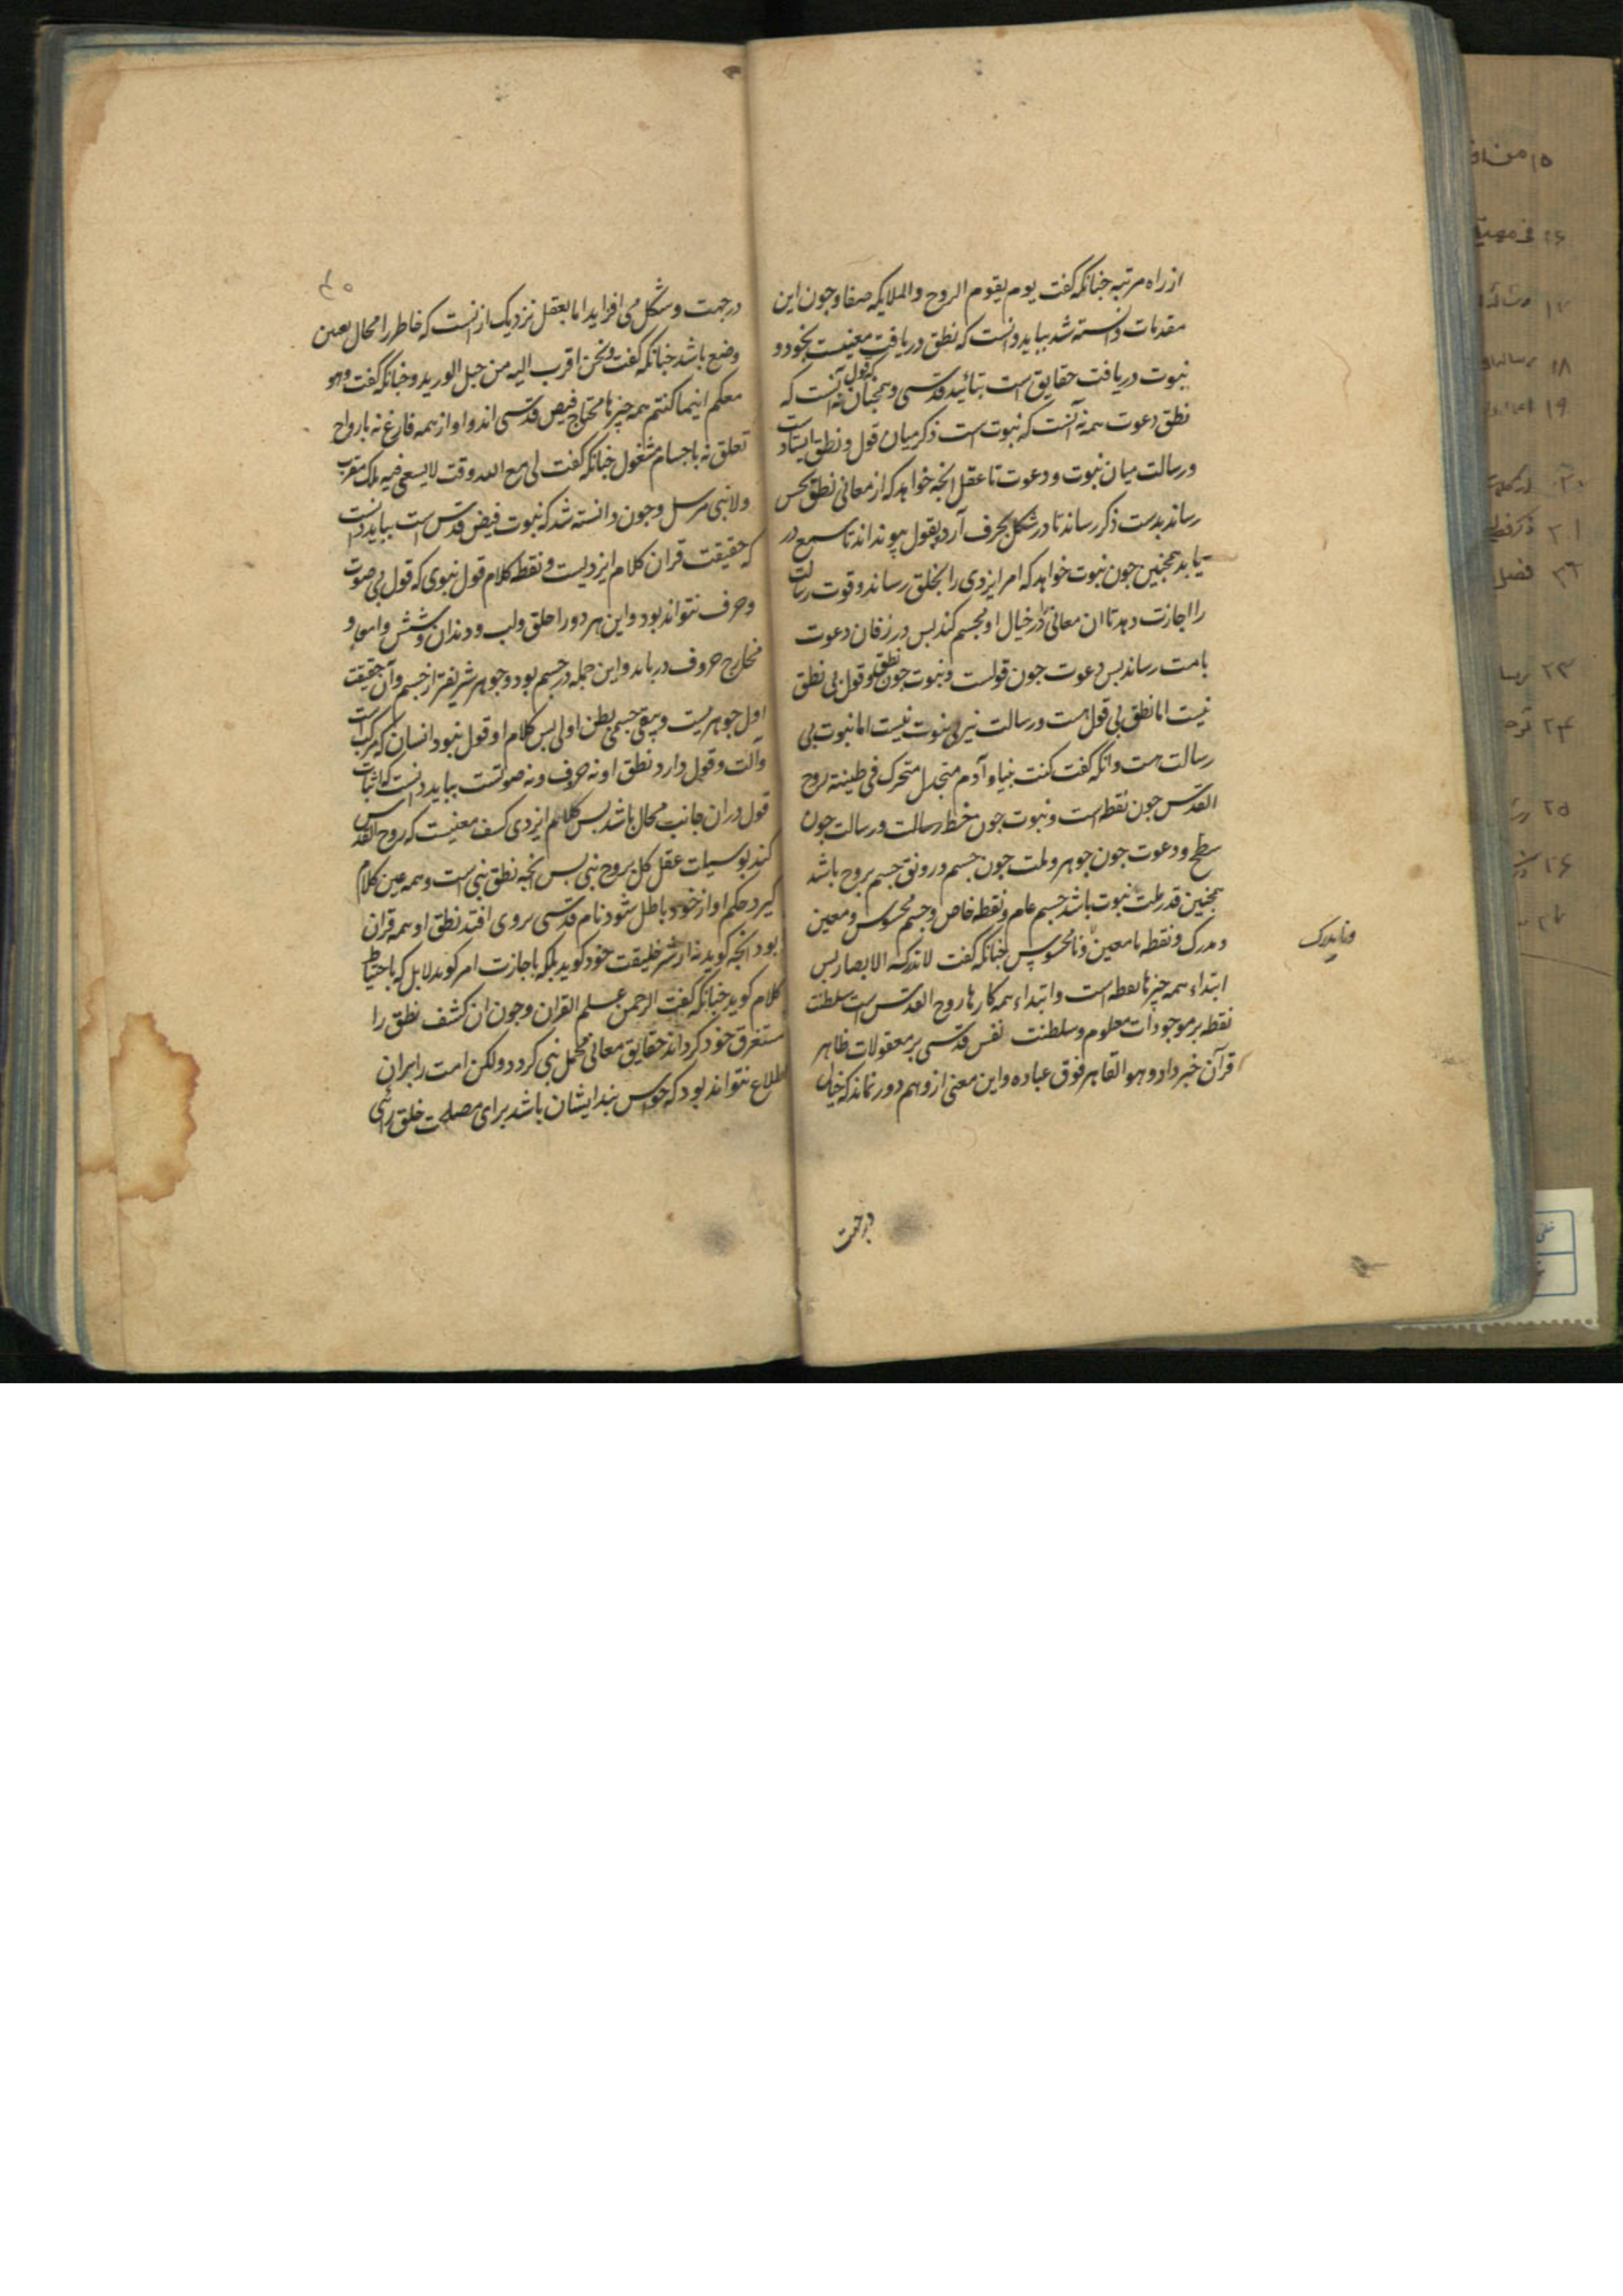 از راه مرتبه جنانکه کفت یوم یقوم الروح والملایکه صفا و جون این
مقدمات دانسته شد بباید دانست که نطق دریافت معنیست بخود و
نبوت دریافت حقایق است بتائید قدسی و همجنان که قول نه آنست که
نطق دعوت همه نه آنست که نبوت است ذکر میان قول و نطق ایستاد
و رسالت میان نبوت و دعوت تا عقل انجه خواهد که از معانی نطق بحس
رساند بدست ذکر رساند تا در شکل بحرف آرد بقول پیونداند تا سمع در
یابد همجنین جون نبوت خواهد که امر ایزدی را بخلق رساند و قوت رسالت
را اجازت دهد تا ان معانی را در خیال او مجسم کند بس در زفان دعوت
بامت رساند بس دعوت جون قولست و نبوت جون نطق و قول بی نطق
نیست اما نطق بی قول هست و رسالت نیز بی نبوت نیست اما نبوت بی
رسالت هست وانکه کفت کنت نبیا و آدم منجدل متحرک فی طینته روح
القدس جون نقطه است و نبوت جون خط و رسالت جون
سطح و دعوت جون جوهر و ملت جون جسم و رونق جسم بروح باشد
همجنین قدر ملت نبوت باشد جسم عام و نقطه خاص و جسم محسوس و معین
و مدرک و نقطه نامعین و نامحسوس جنانکه کفت لا تدرکه الابصار بس
ونایدرک
ابتداء همه جیزها نقطه است و ابتداء همه کارها روح القدس است سلطنت
نقطه بر موجودات معلوم و سلطنت نفس قدسی بر معقولات ظاهر
قرآن خبر داد و هو القاهر فوق عباده و این معنی از وهم دور نماند که خیال
درجهت
درجهت و شکل می افزاید اما بعقل نزدیک ازانست که خاطر را محال تعین
وضع باشد جنانکه کفت و نحن اقرب الیه من حبل الورید و جنانکه کفت وهو
معکم اینما کنتم همه جیزها محتاج فیض قدسی اند و او از همه فارغ نه بارواح
تعلق نه باجسام مشغول جنانکه کفت لی مع الله وقت لا یسعنی فیه ملک مقرب
ولا نبی مرسل و جون دانسته شد که نبوت فیض قدس است بباید دانست
که حقیقت قران کلام ایزدیست و نقطه کلام قول نبوی که قول بی صوت
و حرف نتواند بود و این هر دو را حلق و لب و دندان و شش و
مخارج حروف درباید و این جمله در جسم بود و جوهر شریفتر از جسم و آن حقیقت
اول جوهریست کلام او قول نبود انسان که مرکب است
وآلت و قول دارد نطق او نه حرف و نه صوتست بباید دانست که اثبات
قول دران جانب محال باشد بس کلام ایزدی کشف معنیست که روح القدس
کند بوسیلت عقل کل بروح نبی بس انجه نطق نبی است و همه عین کلام
کیرد حکم او از خود باطل شود نام قدسی بروی افتد نطق او همه قران
بود انجه کوید نه از خلیقت خود کوید بلکه باجازت امر کوید لابل که
کلام کوید جنانکه کفت الرحمن علم القران و جون ان کشف نطق را
مستغرق خود کرداند حقایق معانی نبی کردد ولکن امت را بران
اطلاع نتواند بود که حواس بند ایشان باشد برای مصلحت خلق